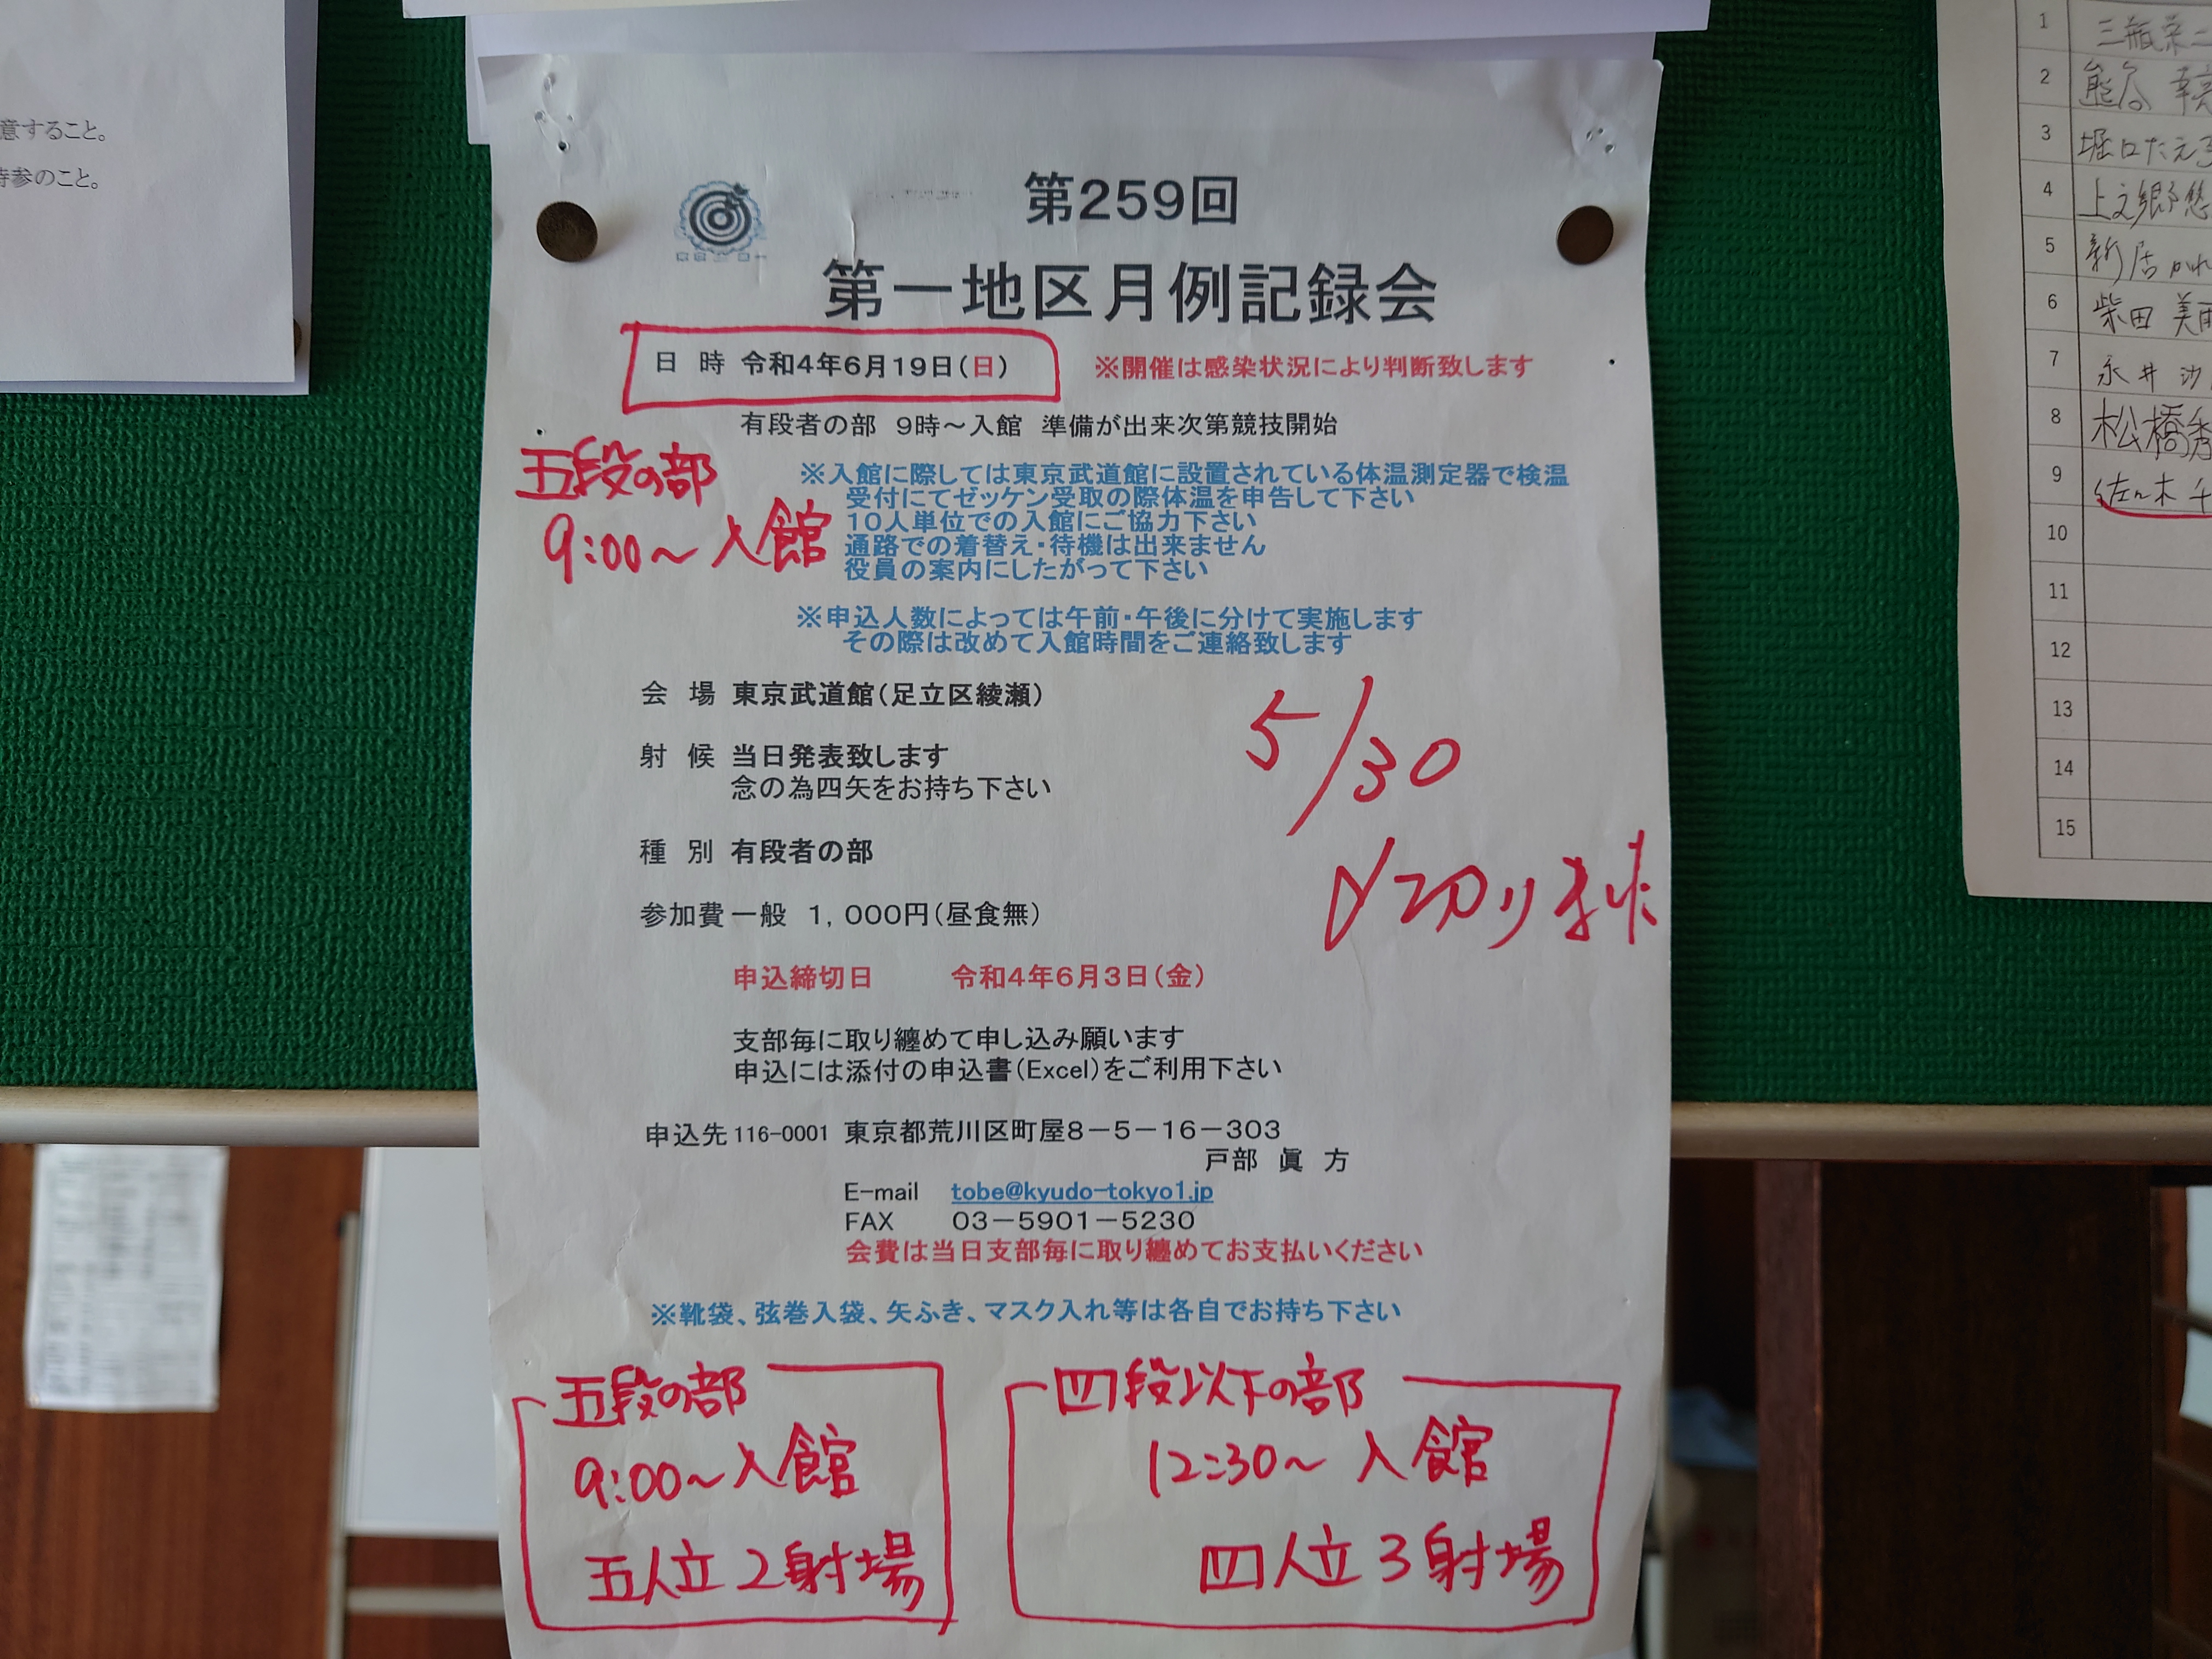 意すること。
持参のこと。
第259回
第一地区月例記録会
日 時 令和4年6月19日(日) ※開催は感染状況により判断致します
有段者の部 9時～入館 準備が出来次第競技開始
五段の部
9:00～入館
※入館に際しては東京武道館に設置されている体温測定器で検温
受付にてゼッケン受取の際体温を申告して下さい
10人単位での入館にご協力下さい
通路での着替え・待機は出来ません
役員の案内にしたがって下さい
※申込人数によっては午前・午後に分けて実施します
その際は改めて入館時間をご連絡致します
会 場 東京武道館(足立区綾瀬)
射 候 当日発表致します
念の為四矢をお持ち下さい
5/30
〆切りました
種 別 有段者の部
参加費 一般 1,000円(昼食無)
申込締切日 令和4年6月3日(金)
支部毎に取り纏めて申し込み願います
申込には添付の申込書(Excel)をご利用下さい
申込先 116-0001 東京都荒川区町屋8－5－16－303
戸部 眞 方
E-mail tobe@kyudo-tokyo1.jp
FAX 03－5901－5230
会費は当日支部毎に取り纏めてお支払いください
※靴袋、弦巻入袋、矢ふき、マスク入れ等は各自でお持ち下さい
五段の部
9:00～入館
五人立 2射場
四段以下の部
12:30～ 入館
四人立 3射場
1 三瓶栄二
2 熊谷 幸
3 堀口たえ子
4 上之郷 悠
5 新居 かれ
6 柴田 美
7 永井 沙
8 松橋秀
9 佐々木 千
10
11
12
13
14
15